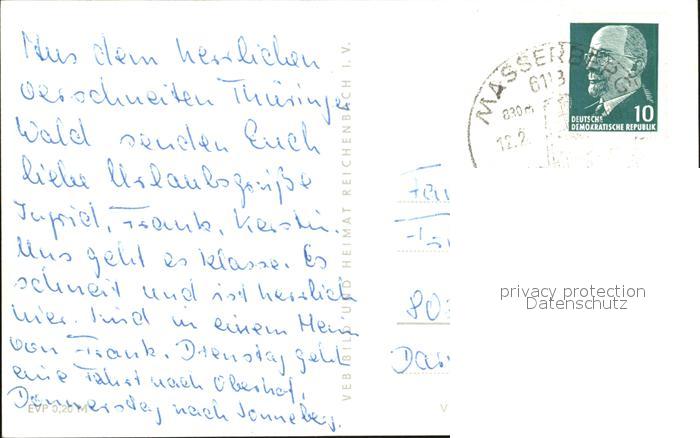 Aus dem herrlichen
verschneiten Thüringer
Wald senden Euch
liebe Urlaubsgrüße
Ingrid, Frank, Kerstin.
Uns geht es klasse. Es
schneit und ist herrlich
hier. Sind in einem Heim
von Frank. Dienstag geht
eine Fahrt nach Oberhof,
Donnerstag nach Sonneberg.
EVP 0,20 M
VEB BILD UND HEIMAT REICHENBACH I. V.
V
MASSERBERG
6113
830m
12.2.
10
DEUTSCHE
DEMOKRATISCHE REPUBLIK
Fa
80
Da
privacy protection
Datenschutz